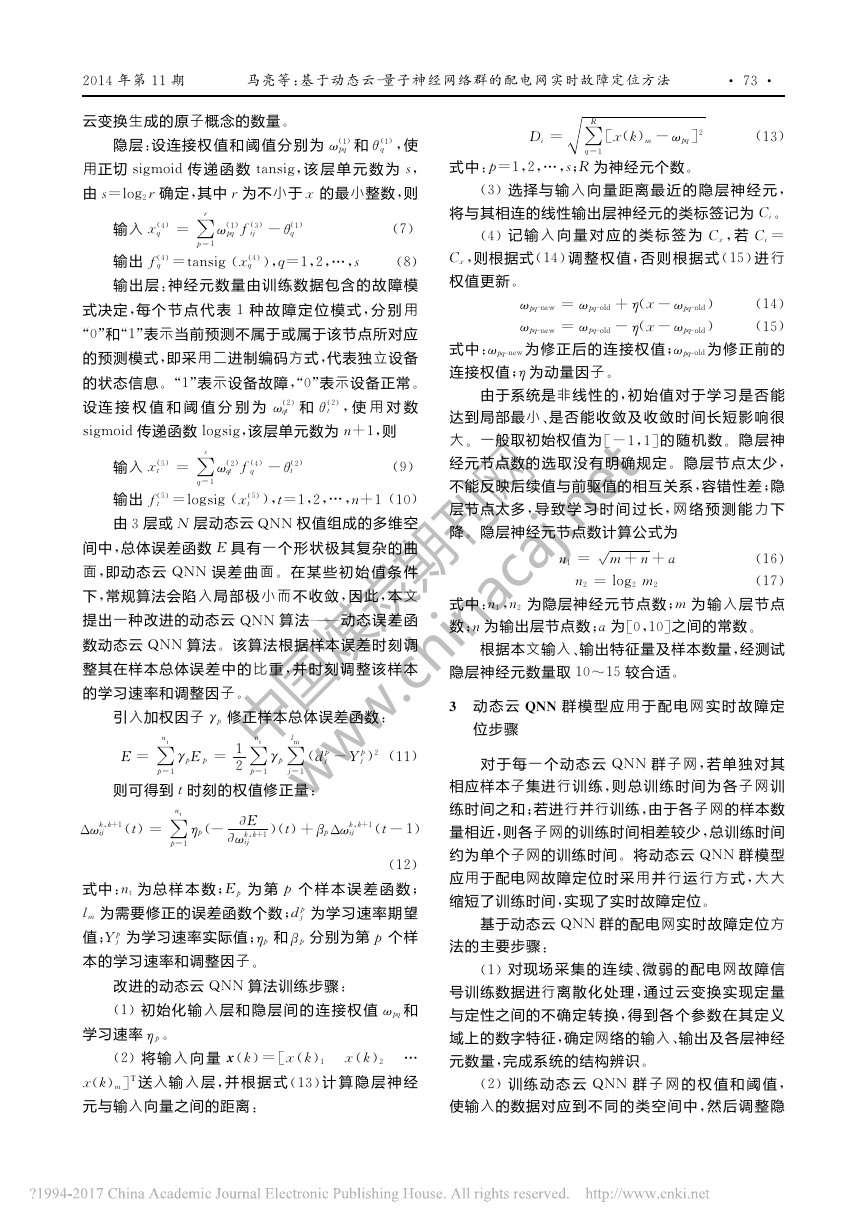 2014 年第 11 期 马亮等:基于动态云-量子神经网络群的配电网实时故障定位方法 · 73 ·
云变换生成的原子概念的数量。
隐层:设连接权值和阈值分别为 ω_{pq}^{(1)} 和 θ_q^{(1)},使
用正切 sigmoid 传递函数 tansig,该层单元数为 s,
由 s=log₂r 确定,其中 r 为不小于 x 的最小整数,则
输入 x_q^{(4)} = ∑_{p=1}^{r} ω_{pq}^{(1)} f_{ij}^{(3)} − θ_q^{(1)} (7)
输出 f_q^{(4)} =tansig (x_q^{(4)}),q=1,2,…,s (8)
输出层:神经元数量由训练数据包含的故障模
式决定,每个节点代表 1 种故障定位模式,分别用
“0”和“1”表示当前预测不属于或属于该节点所对应
的预测模式,即采用二进制编码方式,代表独立设备
的状态信息。“1”表示设备故障,“0”表示设备正常。
设连接权值和阈值分别为 ω_{qt}^{(2)} 和 θ_t^{(2)},使用对数
sigmoid 传递函数 logsig,该层单元数为 n+1,则
输入 x_t^{(5)} = ∑_{q=1}^{s} ω_{qt}^{(2)} f_q^{(4)} − θ_t^{(2)} (9)
输出 f_t^{(5)} =logsig (x_t^{(5)}),t=1,2,…,n+1 (10)
由 3 层或 N 层动态云 QNN 权值组成的多维空
间中,总体误差函数 E 具有一个形状极其复杂的曲
面,即动态云 QNN 误差曲面。在某些初始值条件
下,常规算法会陷入局部极小而不收敛,因此,本文
提出一种改进的动态云 QNN 算法——动态误差函
数动态云 QNN 算法。该算法根据样本误差时刻调
整其在样本总体误差中的比重,并时刻调整该样本
的学习速率和调整因子。
引入加权因子 γ_p 修正样本总体误差函数:
E = ∑_{p=1}^{n_t} γ_p E_p = 1/2 ∑_{p=1}^{n_t} γ_p ∑_{j=1}^{l_m} (d_j^p − Y_j^p)² (11)
则可得到 t 时刻的权值修正量:
Δω_{ij}^{k,k+1}(t) = ∑_{p=1}^{n_t} η_p(− ∂E/∂ω_{ij}^{k,k+1})(t) + β_pΔω_{ij}^{k,k+1}(t−1)
(12)
式中:n_t 为总样本数;E_p 为第 p 个样本误差函数;
l_m 为需要修正的误差函数个数;d_j^p 为学习速率期望
值;Y_j^p 为学习速率实际值;η_p 和 β_p 分别为第 p 个样
本的学习速率和调整因子。
改进的动态云 QNN 算法训练步骤:
(1) 初始化输入层和隐层间的连接权值 ω_{pq} 和
学习速率 η_p。
(2) 将输入向量 x(k)=[x(k)₁ x(k)₂ …
x(k)_m]^T送入输入层,并根据式(13)计算隐层神经
元与输入向量之间的距离:
D_i = √(∑_{q=1}^{R} [x(k)_m − ω_{pq}]²) (13)
式中:p=1,2,…,s;R 为神经元个数。
(3) 选择与输入向量距离最近的隐层神经元,
将与其相连的线性输出层神经元的类标签记为 C_i。
(4) 记输入向量对应的类标签为 C_x,若 C_i=
C_x,则根据式(14)调整权值,否则根据式(15)进行
权值更新。
ω_{pq-new} = ω_{pq-old} + η(x − ω_{pq-old}) (14)
ω_{pq-new} = ω_{pq-old} − η(x − ω_{pq-old}) (15)
式中:ω_{pq-new}为修正后的连接权值;ω_{pq-old}为修正前的
连接权值;η 为动量因子。
由于系统是非线性的,初始值对于学习是否能
达到局部最小、是否能收敛及收敛时间长短影响很
大。一般取初始权值为[−1,1]的随机数。隐层神
经元节点数的选取没有明确规定。隐层节点太少,
不能反映后续值与前驱值的相互关系,容错性差;隐
层节点太多,导致学习时间过长,网络预测能力下
降。隐层神经元节点数计算公式为
n₁ = √(m+n) + a (16)
n₂ = log₂ m₂ (17)
式中:n₁,n₂ 为隐层神经元节点数;m 为输入层节点
数;n 为输出层节点数;a 为[0,10]之间的常数。
根据本文输入、输出特征量及样本数量,经测试
隐层神经元数量取 10～15 较合适。
3 动态云 QNN 群模型应用于配电网实时故障定
位步骤
对于每一个动态云 QNN 群子网,若单独对其
相应样本子集进行训练,则总训练时间为各子网训
练时间之和;若进行并行训练,由于各子网的样本数
量相近,则各子网的训练时间相差较少,总训练时间
约为单个子网的训练时间。将动态云 QNN 群模型
应用于配电网故障定位时采用并行运行方式,大大
缩短了训练时间,实现了实时故障定位。
基于动态云 QNN 群的配电网实时故障定位方
法的主要步骤:
(1) 对现场采集的连续、微弱的配电网故障信
号训练数据进行离散化处理,通过云变换实现定量
与定性之间的不确定转换,得到各个参数在其定义
域上的数字特征,确定网络的输入、输出及各层神经
元数量,完成系统的结构辨识。
(2) 训练动态云 QNN 群子网的权值和阈值,
使输入的数据对应到不同的类空间中,然后调整隐
中国煤炭期刊网
www.chinacaj.net
?1994-2017 China Academic Journal Electronic Publishing House. All rights reserved. http://www.cnki.net